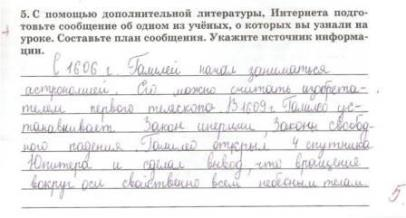 5. С помощью дополнительной литературы, Интернета подго-
товьте сообщение об одном из учёных, о которых вы узнали на
уроке. Составьте план сообщения. Укажите источник информа-
ции.
В 1606 г. Галилей начал заниматься
астрономией. Его можно считать изобрета-
телем первого тяляскопа. В 1609 г. Галилео ус-
танавливает Закон инерции, Законы свобод-
ного падения. Галилео открыл 4 спутника
Юпитера и сделал вывод, что вращение
вокруг оси свойственно всем небесным телам.
5